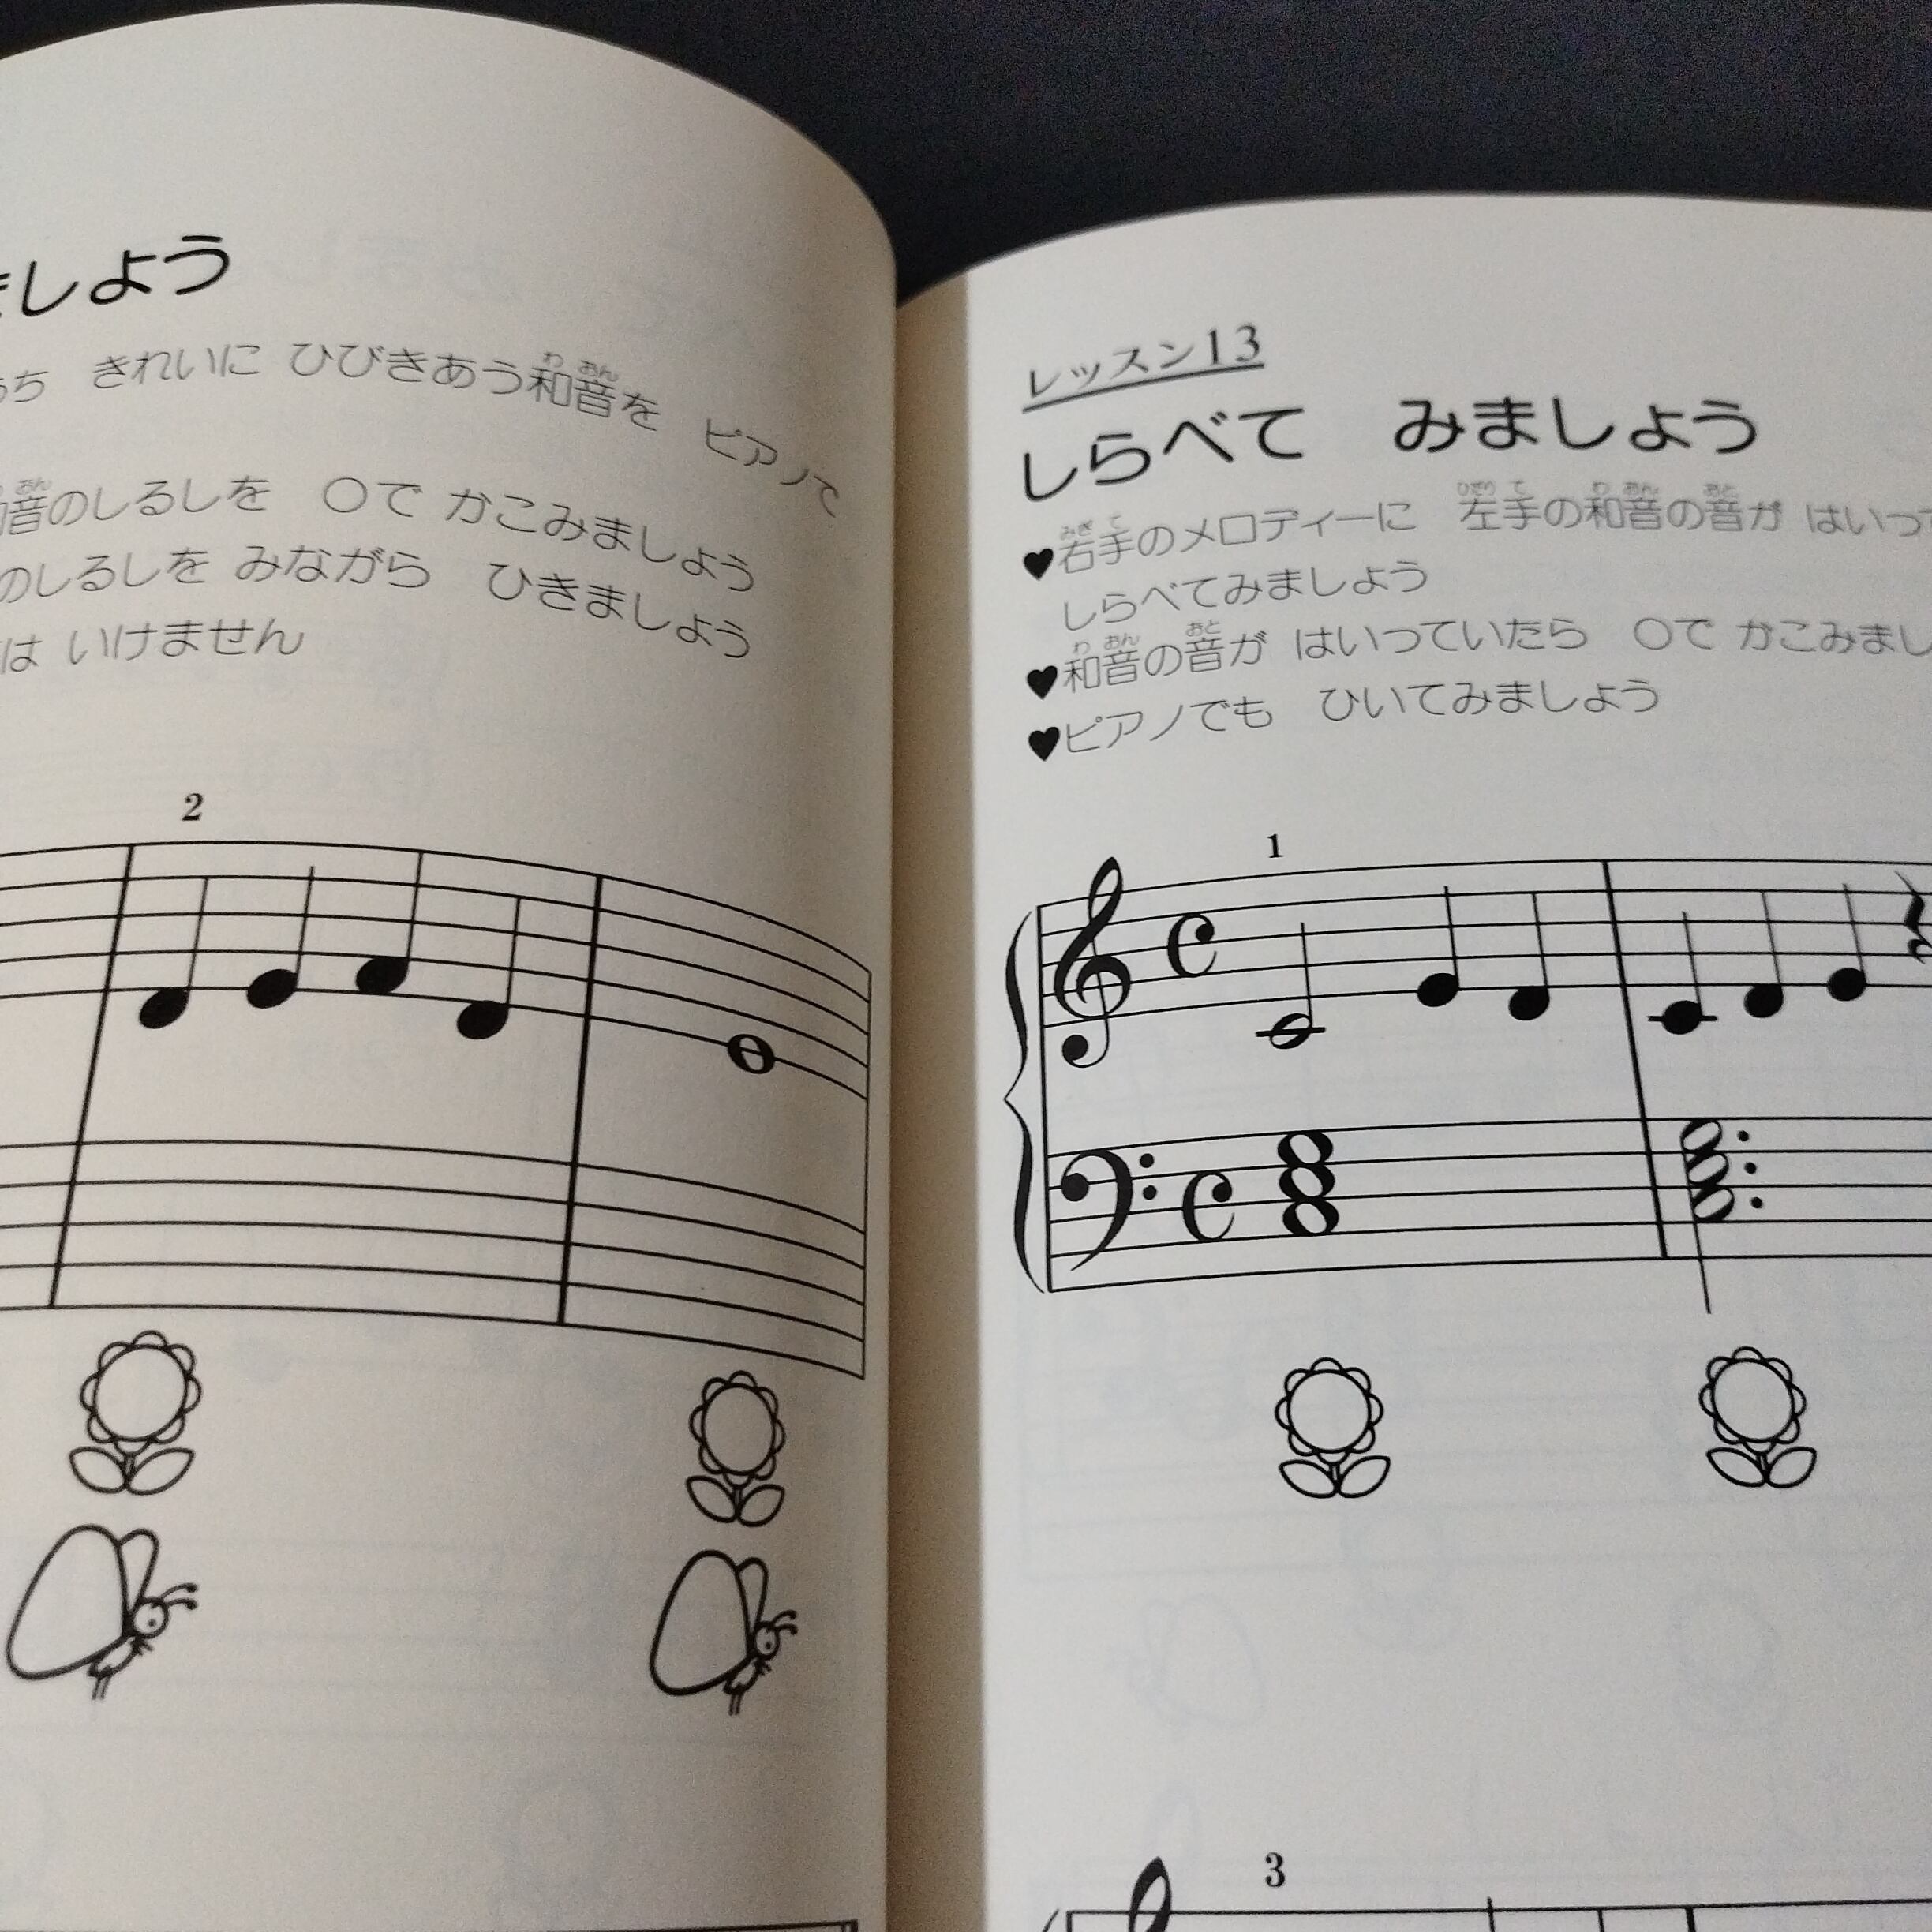 ましょう
うち きれいに ひびきあう和音を ピアノで
和音のしるしを ○で かこみましょう
のしるしを みながら ひきましょう
は いけません
2
レッスン13
しらべて みましょう
♥右手のメロディーに 左手の和音の音が はいって
しらべてみましょう
♥和音の音が はいっていたら ○で かこみまし
♥ピアノでも ひいてみましょう
1
3